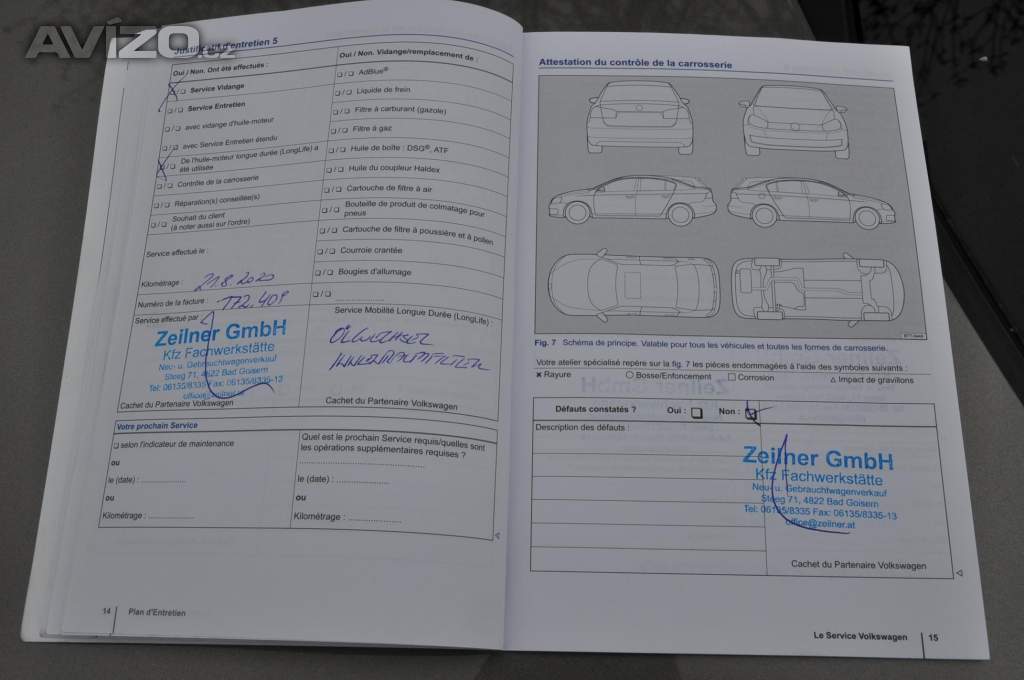 AVÍZO.cz
Justificatif d'entretien 5
Oui / Non. Ont été effectués :
❏ / ❏ Service Vidange
❏ / ❏ Service Entretien
❏ / ❏ avec vidange d'huile-moteur
❏ / ❏ avec Service Entretien étendu
❏ / ❏ De l'huile-moteur longue durée (LongLife) a
été utilisée
❏ / ❏ Contrôle de la carrosserie
❏ / ❏ Réparation(s) conseillée(s)
❏ / ❏ Souhait du client
(à noter aussi sur l'ordre)
Service effectué le :
21.8.2020
Kilométrage :
172.409
Numéro de la facture :
Oui / Non. Vidange/remplacement de :
❏ / ❏ AdBlue®
❏ / ❏ Liquide de frein
❏ / ❏ Filtre à carburant (gazole)
❏ / ❏ Filtre à gaz
❏ / ❏ Huile de boîte : DSG®, ATF
❏ / ❏ Huile du coupleur Haldex
❏ / ❏ Cartouche de filtre à air
❏ / ❏ Bouteille de produit de colmatage pour
pneus
❏ / ❏ Cartouche de filtre à poussière et à pollen
❏ / ❏ Courroie crantée
❏ / ❏ Bougies d'allumage
❏ / ❏ ....................
Service effectué par :
Zeilner GmbH
Kfz Fachwerkstätte
Neu- u. Gebrauchtwagenverkauf
Steeg 71, 4822 Bad Goisern
Tel: 06135/8335 Fax: 06135/8335-13
office@zeilner.at
Cachet du Partenaire Volkswagen
Service Mobilité Longue Durée (LongLife) :
ÖLWECHSEL
INNENRAUMFILTER
Cachet du Partenaire Volkswagen
Votre prochain Service
❏ selon l'indicateur de maintenance
ou
le (date) : ....................
ou
Kilométrage : ....................
Quel est le prochain Service requis/quelles sont
les opérations supplémentaires requises ?
........................................
le (date) : ....................
ou
Kilométrage : ....................
14 Plan d'Entretien
Attestation du contrôle de la carrosserie
Fig. 7 Schéma de principe. Valable pour tous les véhicules et toutes les formes de carrosserie.
Votre atelier spécialisé repère sur la fig. 7 les pièces endommagées à l'aide des symboles suivants :
✖ Rayure ○ Bosse/Enfoncement □ Corrosion △ Impact de gravillons
Défauts constatés ? Oui : ❏ Non : ❏
Description des défauts :
Zeilner GmbH
Kfz Fachwerkstätte
Neu- u. Gebrauchtwagenverkauf
Steeg 71, 4822 Bad Goisern
Tel: 06135/8335 Fax: 06135/8335-13
office@zeilner.at
Cachet du Partenaire Volkswagen
Le Service Volkswagen 15